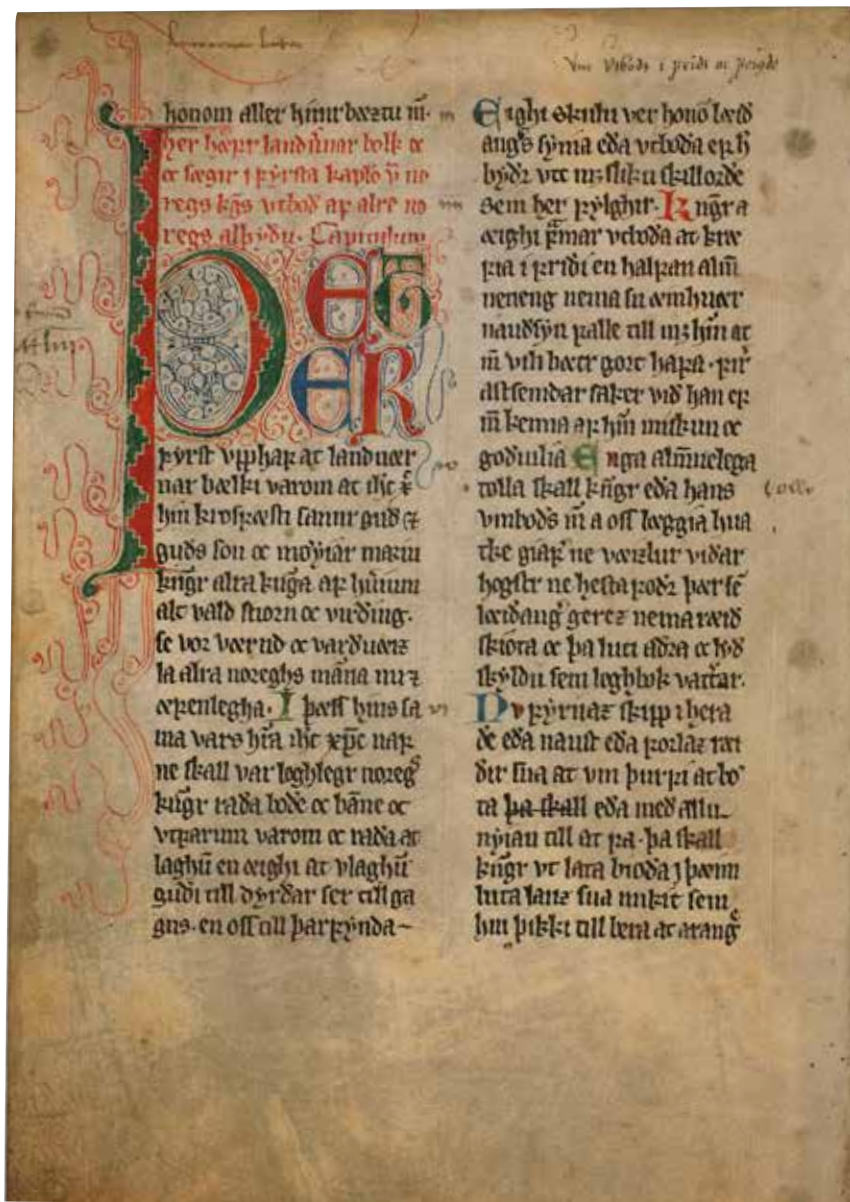 honom aller hinir bæztu m̄·
her hæfr landuarnar bolk oc
oc sægir i fyrsta kapło v̄ no
regs kgs vtbod af alre no
regs alþydu· Capitulum
ÞET
ER
fyrst vpphaf at landuær
nar bælki varom at
hin krosfæsti sannr gud oc
guds son oc møyiar mariu
kn̄gr alra kun̄ga af hánum
alt vald stiorn oc virding·
se vor værnd oc varduæiz
la alra noreghs man̄a nu oc
æfenlegha· I þæss hins sa
ma vars
ne skall var loghlegr noregs
kn̄gr rada bode oc ban̄e oc
vtfarum varom oc rada at
laghū en æighi at vlaghū
gudi till dyrdar ser till ga
gns· en oss till þarfynda~
Vm vtbods i fridi oc
Eighi skulu ver honō læid
angs syma eda vtboda er h
bydr vtt mz sliku skilorde
sem her fylghir· Kn̄gr a
æighi fmar vtboda at kræ
fia i fridi en halfan alm̄
neneng nema su æinhuær
naudsyn falle till mz him at
m̄ vili bætr gort hafa· fir
astsemdar saker vid han ep
m̄ kenna af him miskun oc
goduilia Enga alm̄nelega
tolla skall kn̄gr eda hans
vmbods m̄ a oss læggia hua
rke giaf ne væizlur vidar
hogstr ne hesta fodr þær sē
læidang gerez nema ræid
skiota oc þa luti adra oc lyd
skyldu sem loghbok vattar·
Nv fyrnaz skipp i hera
de eda naust eda forlaz ræi
dir sua at vm þurfi at bø
ta þa skall eda med allu
nyian till at fa· þa skall
kn̄gr vt lata bioda j þæim
luta lanz sua mikit sem
him þikki till bera at arang